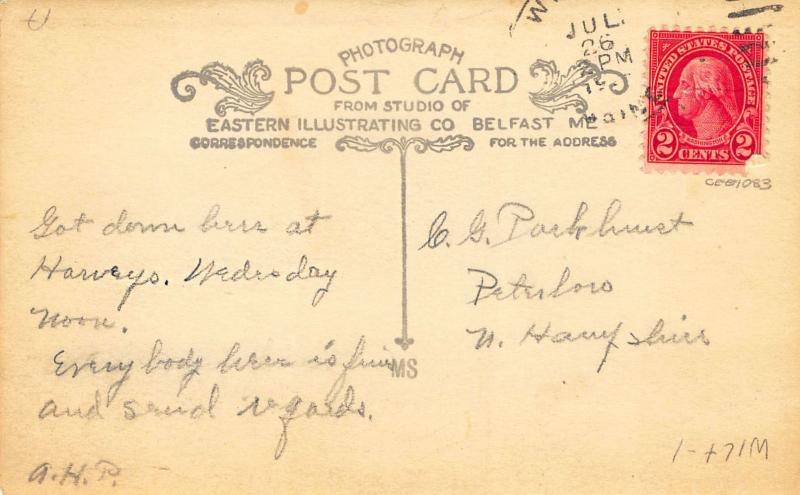 JUL.
26
PM
MAINE
UNITED STATES POSTAGE
WASHINGTON
2 CENTS 2
PHOTOGRAPH
POST CARD
FROM STUDIO OF
EASTERN ILLUSTRATING CO BELFAST ME
CORRESPONDENCE FOR THE ADDRESS
Got down here at
Harveys. Wedesday
noon.
Every body here is fine
and send regards.
A.H.P.
C. G. Parkhurst
Peterboro
N. Hampshire
MS